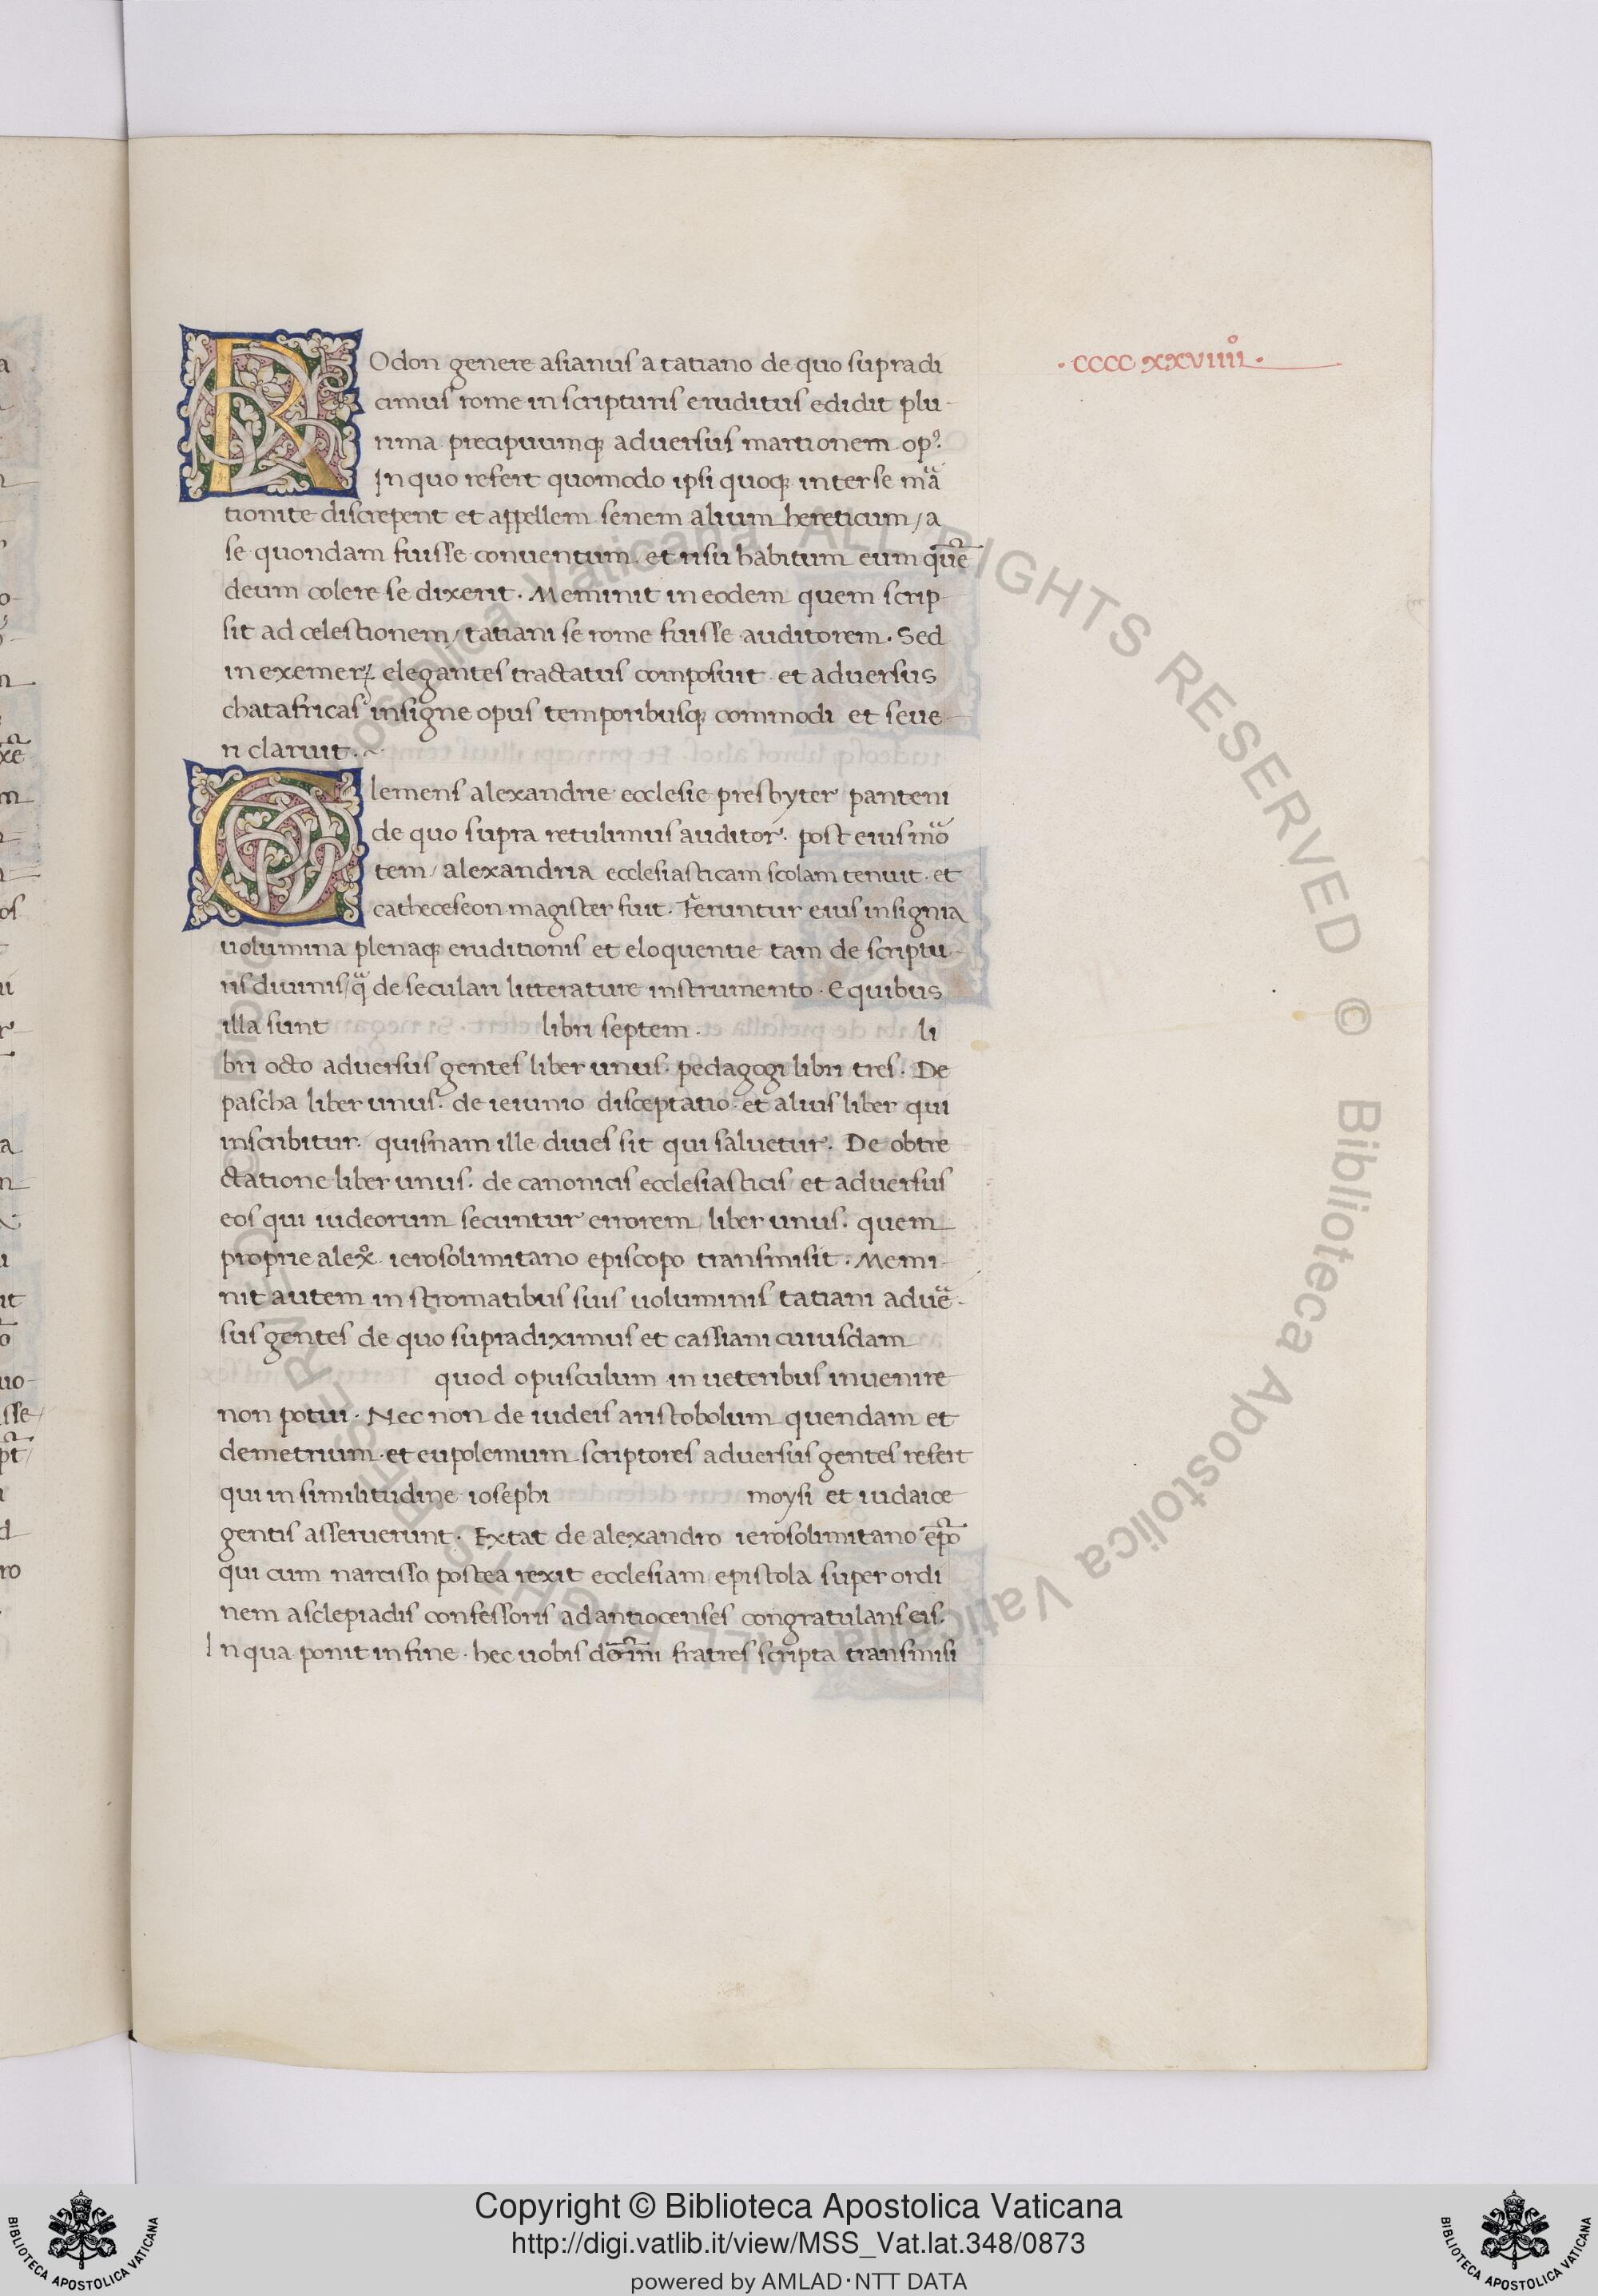 · cccc xxviiii° ·
ROdon genere asianus a tatiano de quo supradi
cimus rome in scripturis eruditus edidit plu-
rima precipuumq; adversus martionem op⁹.
In quo refert quomodo ipsi quoq; inter se mᷓa
tionite discrepent et appellem senem alium hereticum / a
se quondam fuisse conventum. et risu habitum eum qũẽ
deum colere se dixerit. Meminit in eodem quem scrip-
sit ad celestionem / tatiani se rome fuisse auditorem. Sed
in exemerꝝ elegantes tractatus composuit. et adversus
chatafricas insigne opus temporibusq; commodi et seue-
ri claruit. ~
Clemens alexandrie ecclesie presbyter panteni
de quo supra retulimus auditor. post eius mõ
tem / alexandria ecclesiasticam scolam tenuit. et
catheceseon magister fuit. Feruntur eius insignia
uolumina plenaq; eruditionis et eloquentie tam de scriptu-
ris diuinis / qᷓ de seculari litterature instrumento. E quibus
illa sunt libri septem. li
bri octo adversus gentes liber unus. pedagogi libri tres. De
pascha liber unus. de ieiunio disceptatio. et alius liber qui
inscribitur. quisnam ille dives sit qui salvetur. De obtre
ctatione liber unus. de canonicis ecclesiasticis / et adversus
eos qui iudeorum secuntur errorem liber unus. quem
proprie alex̊. ierosolimitano episcopo transmisit. Memi-
nit autem in stromatibus suis uoluminis tatiani aduẽ-
sus gentes de quo supradiximus et cassiani cuiusdam
quod opusculum in ueteribus invenire
non potui. Nec non de iudeis aristobolum quendam et
demetrium. et eupolemum scriptores adversus gentes refert
qui in similitudine iosephi moysi et iudaice
gentis asseruerunt. Extat de alexandro ierosolimitano ep̃o
qui cum narcisso postea rexit ecclesiam epistola super ordi
nem asclepiadis confessoris ad antiocenses congratulans eis.
In qua ponit in fine. hec uobis dom̃i fratres scripta transmisi
Copyright © Biblioteca Apostolica Vaticana
http://digi.vatlib.it/view/MSS_Vat.lat.348/0873
powered by AMLAD·NTT DATA
BIBLIOTECA APOSTOLICA VATICANA
BIBLIOTECA APOSTOLICA VATICANA